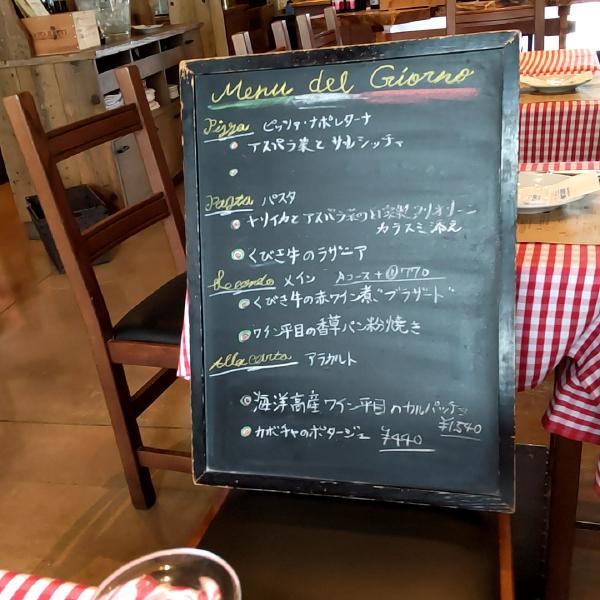 Menu del Giorno
Pizza ピッツァ・ナポレターナ
アスパラ菜とサルシッチャ
Pasta パスタ
ヤリイカとアスパラ菜の自家製タリオリーニ
カラスミ添え
くびき牛のラザニア
メイン Aコース+770
くびき牛の赤ワイン煮"ブラザード"
ワイン平目の香草パン粉焼き
Alla carta アラカルト
海洋高産ワイン平目のカルパッチョ
¥1,540
カボチャのポタージュ ¥440